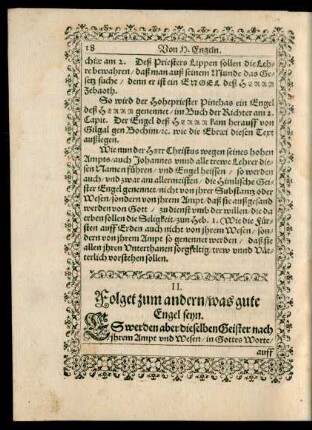 18 Von H. Engeln.
chiæ am 2. Deß Priesters Lippen sollen die Leh-
re bewahren / daß man auß seinem Munde das Ge-
setz suche / denn er ist ein ENGEL deß HERRN
Zebaoth.
So wird der Hohepriester Pinehas ein Engel
deß HERRN genennet / im Buch der Richter am 2.
Capit. Der Engel deß HERRN kam herauff von
Gilgal gen Bochim / ꝛc. wie die Ebrei diesen Text
außlegen.
Wie nun der Herr Christus wegen seines hohen
Ampts / auch Johannes vnnd alle trewe Lehrer die-
sen Namen führen / vnd Engel heissen / so werden
auch / vnd zwar am allermeisten / die Himlische Gei-
ster Engel genennet / nicht von jhrer Substantz oder
Wesen / sondern von jhrem Ampt / daß sie außgesand
werden von Gott / zu dienst vmb der willen / die da
erben sollen die Seligkeit / zun Heb. 1. (Wie die Für-
sten auff Erden auch nicht von jhrem Wesen / son-
dern von jhrem Ampt so genennet werden / daß sie
allen jhren Vnterthanen sorgfeltig / trew vnnd Vät-
terlich vorstehen sollen.
II.
Folget zum andern / was gute
Engel seyn.
ES werden aber dieselben Geister nach
jhrem Ampt vnd Wesen / in Gottes Worte /
auff